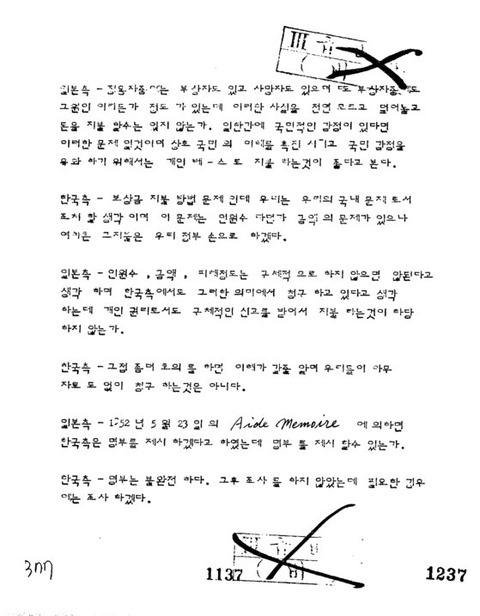 III 급
일본측 - 징용자중에는 부상자도 있고 사망자도 있으며 또 부상자중에도
그원인 이라든가 정도 가 있는데 이러한 사실을 전연 모르고 덮어놓고
돈을 지불 할수는 없지 않는가. 일한간에 국민적인 감정이 있다면
이러한 문제 일것이며 상호 국민 의 이해를 촉진 시키고 국민 감정을
유화 하기 위해서는 개인 베-스 로 지불 하는것이 좋다고 본다.
한국측 - 보상금 지불 방법 문제 인데 우리는 우리의 국내 문제 로서
조치 할 생각 이며 이 문제는 인원수 라던가 금액 의 문제가 있으나
여하튼 그지불은 우리 정부 손으로 하겠다.
일본측 - 인원수 , 금액 , 피해정도는 구체적 으로 하지 않으면 않된다고
생각 하며 한국측에서도 그러한 의미에서 청구 하고 있다고 생각
하는데 개인 권리로서도 구체적인 신고를 받어서 지불 하는것이 타당
하지 않는가.
한국측 - 그점 좀더 토의 를 하면 이해가 갈줄 알며 우리들이 아무
자료 도 없이 청구 하는것은 아니다.
일본측 - 1952 년 5 월 23 일 의 Aide Memoire 에 의하면
한국측은 명부를 제시 하겠다고 하였는데 명부 를 제시 할수 있는가.
한국측 - 명부는 불완전 하다. 그후 조사 를 하지 않았는데 필요한 경우
에는 조사 하겠다.
307 1137 1237